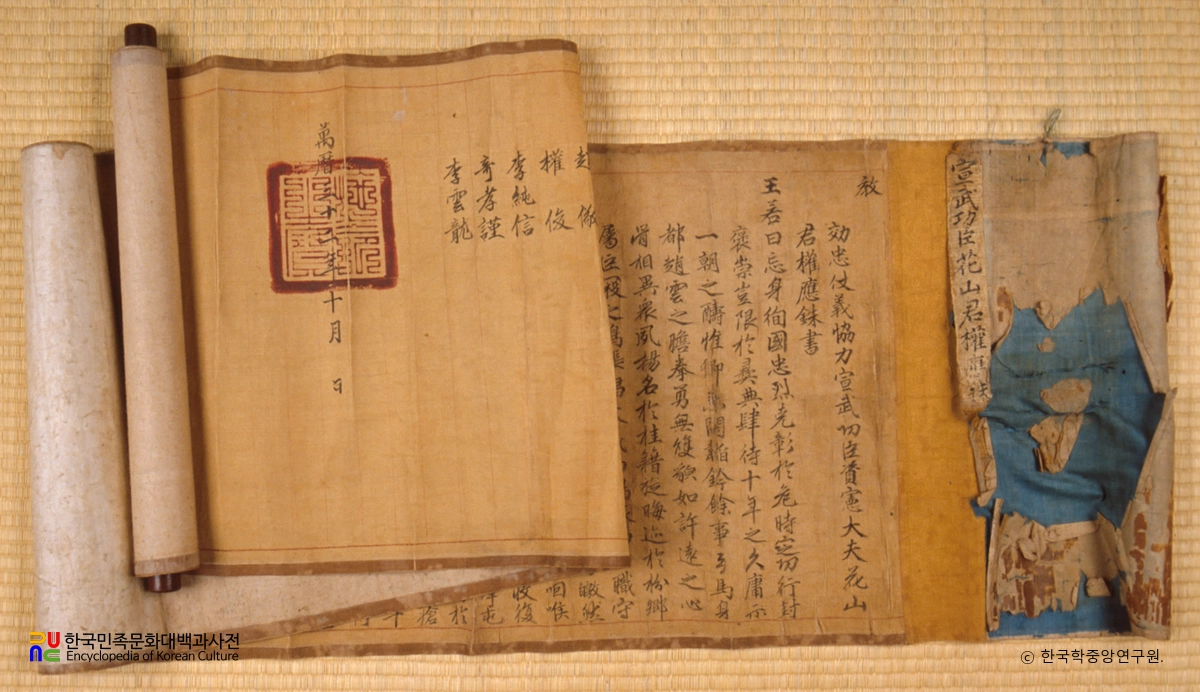 宣武功臣花山君權應銖
敎
効忠仗義協力宣武功臣資憲大夫花山
君權應銖書
王若曰忘身徇國忠烈克彰於危時定功行封
褒崇豈限於彛典肆待十年之久庸示
一朝之醻惟卿 韜鈐餘事弓馬身
都趙雲之膽拳勇無雙 如許遠之心
骨相異衆夙揚名於桂籍旋晦迹於枌鄕
職守
咽喉
收復
於
槍
權俊
李純信
奇孝謹
李雲龍
萬曆三十二年十月 日
한국민족문화대백과사전
Encyclopedia of Korean Culture
© 한국학중앙연구원.